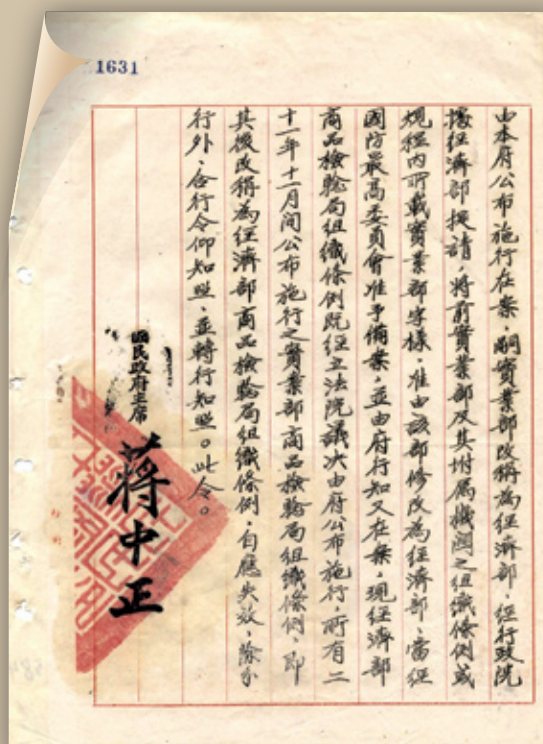 1631
由本府公布施行在案、嗣實業部改稱為經濟部、經行政院
據經濟部提請、將前實業部及其附屬機關之組織條例或
規程內所載實業部字樣、准由該部修改為經濟部、當經
國防最高委員會准予備案、並由府行知又在案、現經濟部
商品檢驗局組織條例既經立法院議決由府公布施行、所有二
十一年十一月間公布施行之實業部商品檢驗局組織條例、即
其後改稱為經濟部商品檢驗局組織條例、自應失效、除分
行外、合行令仰知照、並轉行知照。此令。
國民政府主席
蔣中正